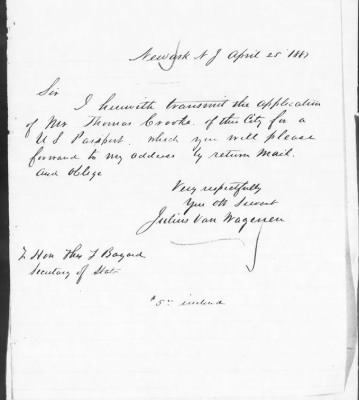 Newark N J April 25 1887
Sir
I herewith transmit the application
of Mr Thomas Crooks, of this City for a
U S Passport, which you will please
forward to my address by return Mail,
and oblige
Very respectfully
Your obt Servant
Julius Van Wagenen
To Hon Thos F Bayard
Secretary of State
$5 00 inclosed